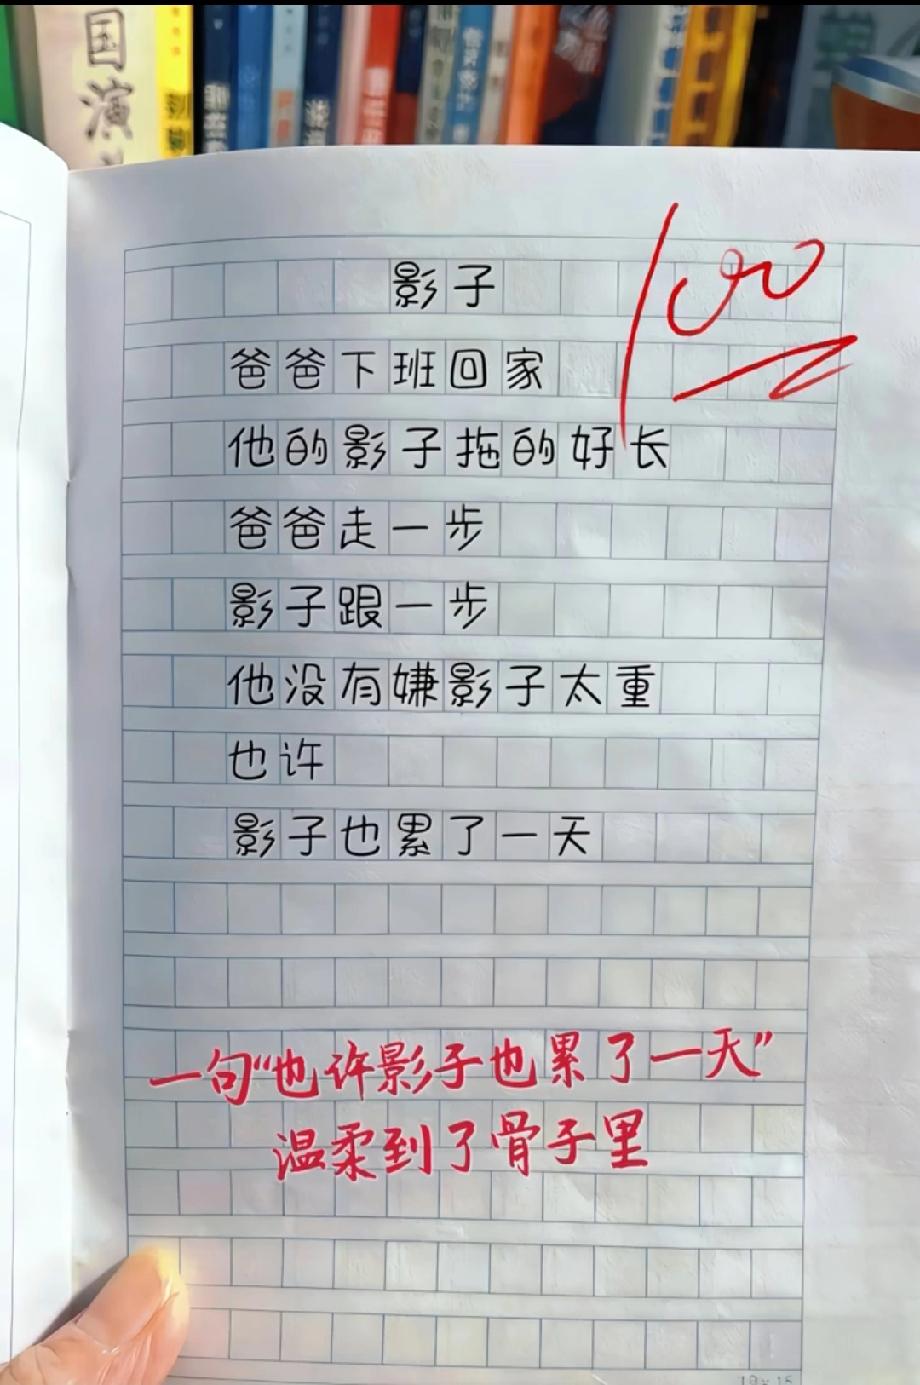 国演
100
影子
爸爸下班回家
他的影子拖的好长
爸爸走一步
影子跟一步
他没有嫌影子太重
也许
影子也累了一天
一句“也许影子也累了一天”
温柔到了骨子里